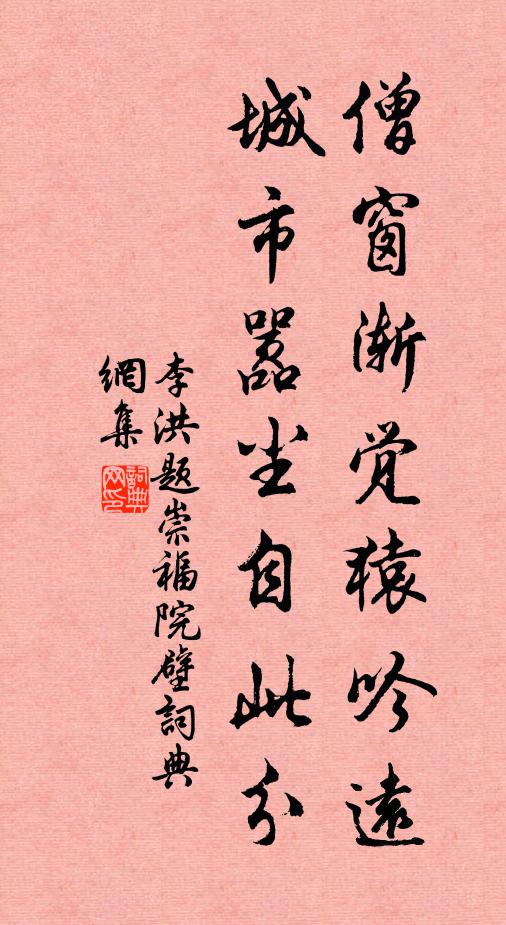 僧窗渐覚猿吟遠
城市嚣尘自此分
李洪题崇福院壁詞典
網集
詞典
网印